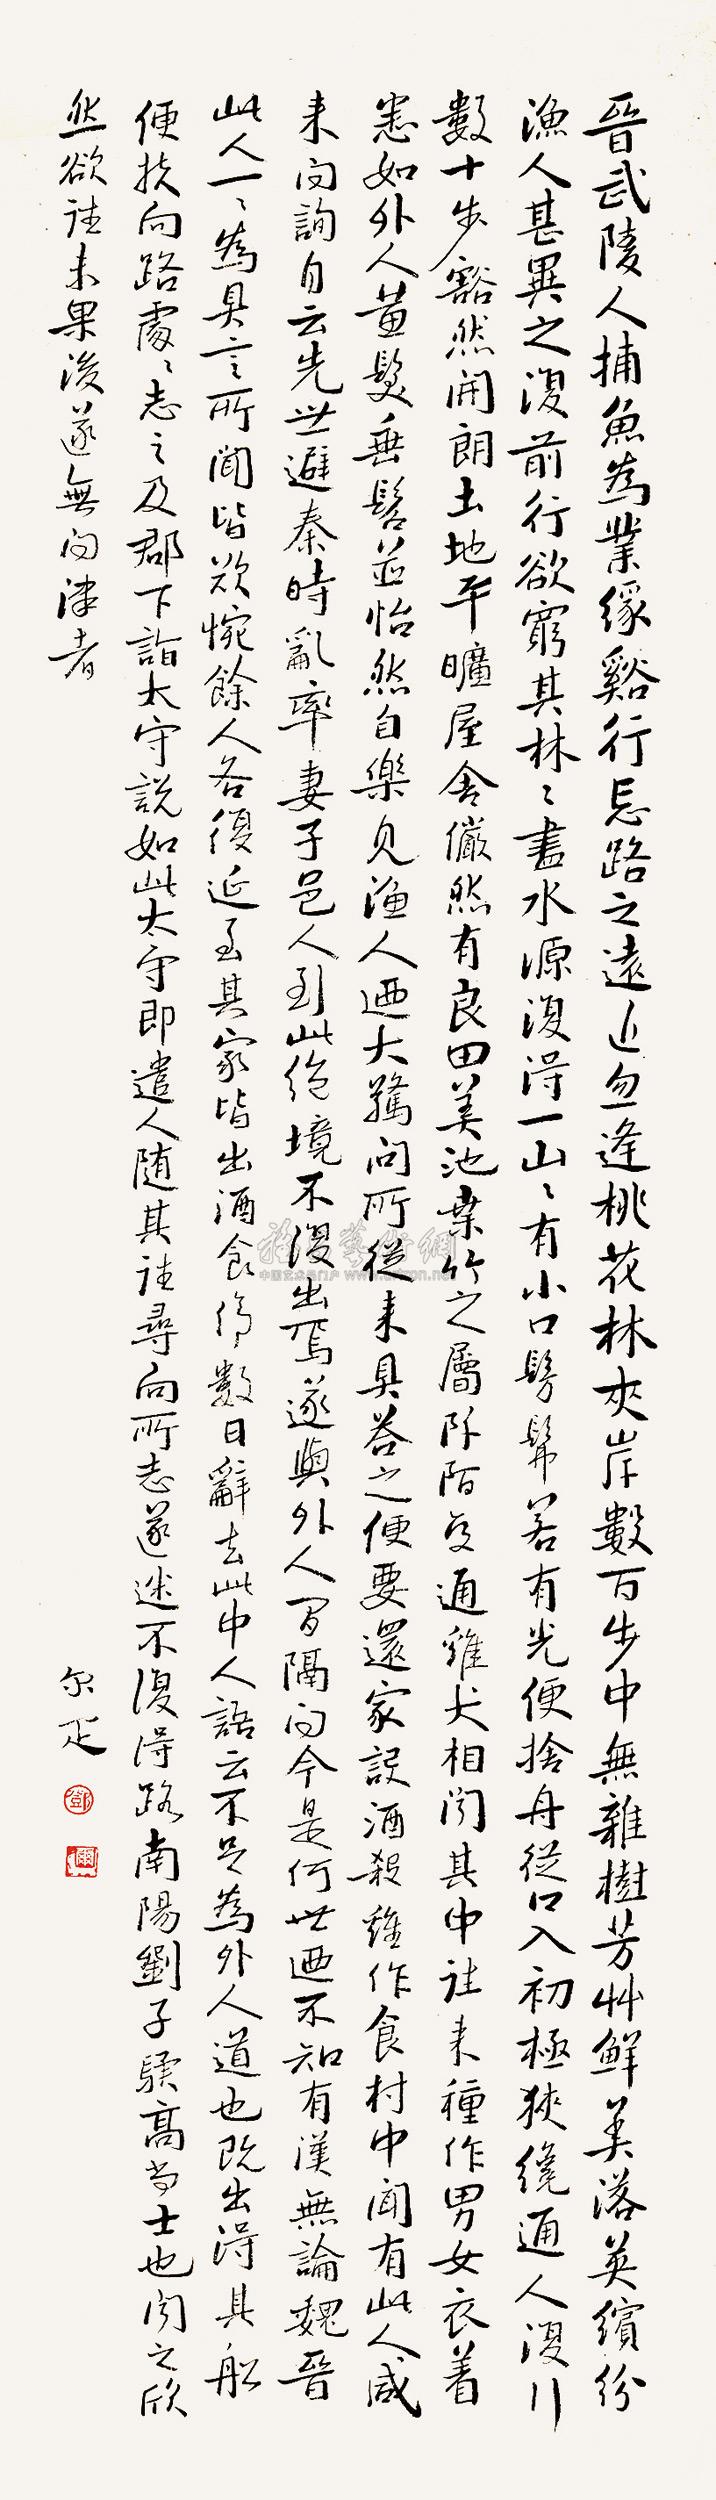 晉武陵人捕魚為業緣谿行忘路之遠近忽逢桃花林夾岸數百步中無雜樹芳艸鮮美落英繽紛
漁人甚異之復前行欲窮其林〻盡水源復得一山〻有小口髣髴若有光便捨舟從口入初極狹纔通人復行
數十步豁然開朗土地平曠屋舍儼然有良田美池桒竹之屬阡陌交通雞犬相聞其中往来種作男女衣着
悉如外人黃髮垂髫並怡然自樂見漁人迺大驚問所從来具答之便要還家設酒殺雞作食村中聞有此人咸
来問詢自云先世避秦時亂率妻子邑人到此絕境不復出焉遂與外人間隔問今是何世迺不知有漢無論魏晉
此人一〻為具言所聞皆歎惋餘人各復延至其家皆出酒食停數日辭去此中人語云不足為外人道也既出得其船
便扶向路處〻志之及郡下詣太守說如此太守即遣人隨其往尋向所志遂迷不復得路南陽劉子驥高尚士也聞之欣
然欲往未果後遂無問津者
尔疋
鄧
爾